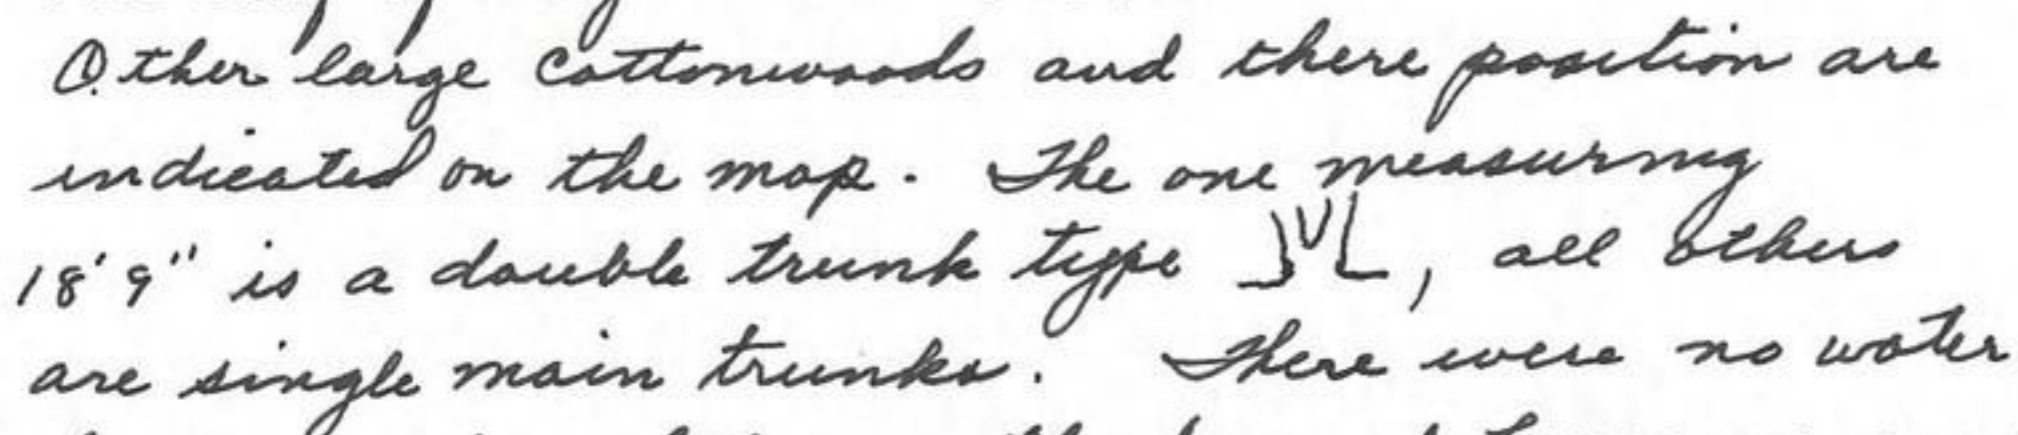 Other large cottonwoods and there position are
indicated on the map. The one measuring
18'9" is a double trunk type , all others
are single main trunks. There were no water